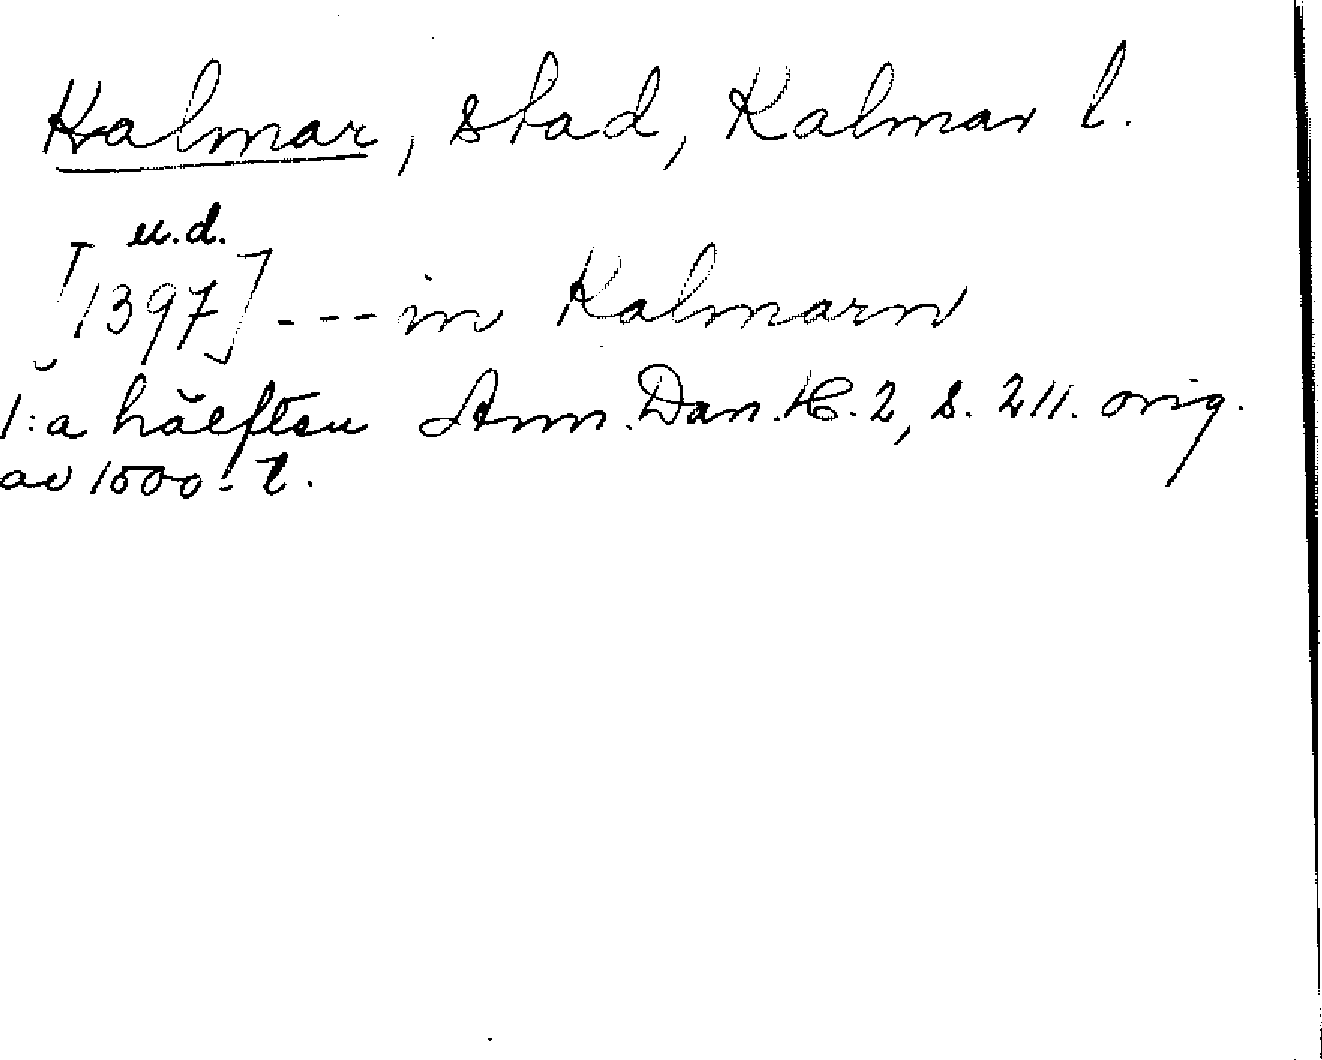 Kalmar, stad, Kalmar l.
u.d.
[1397] --- in Kalmarn
1:a hälften Ann. Dan. 2, s. 211. orig.
av 1500-t.